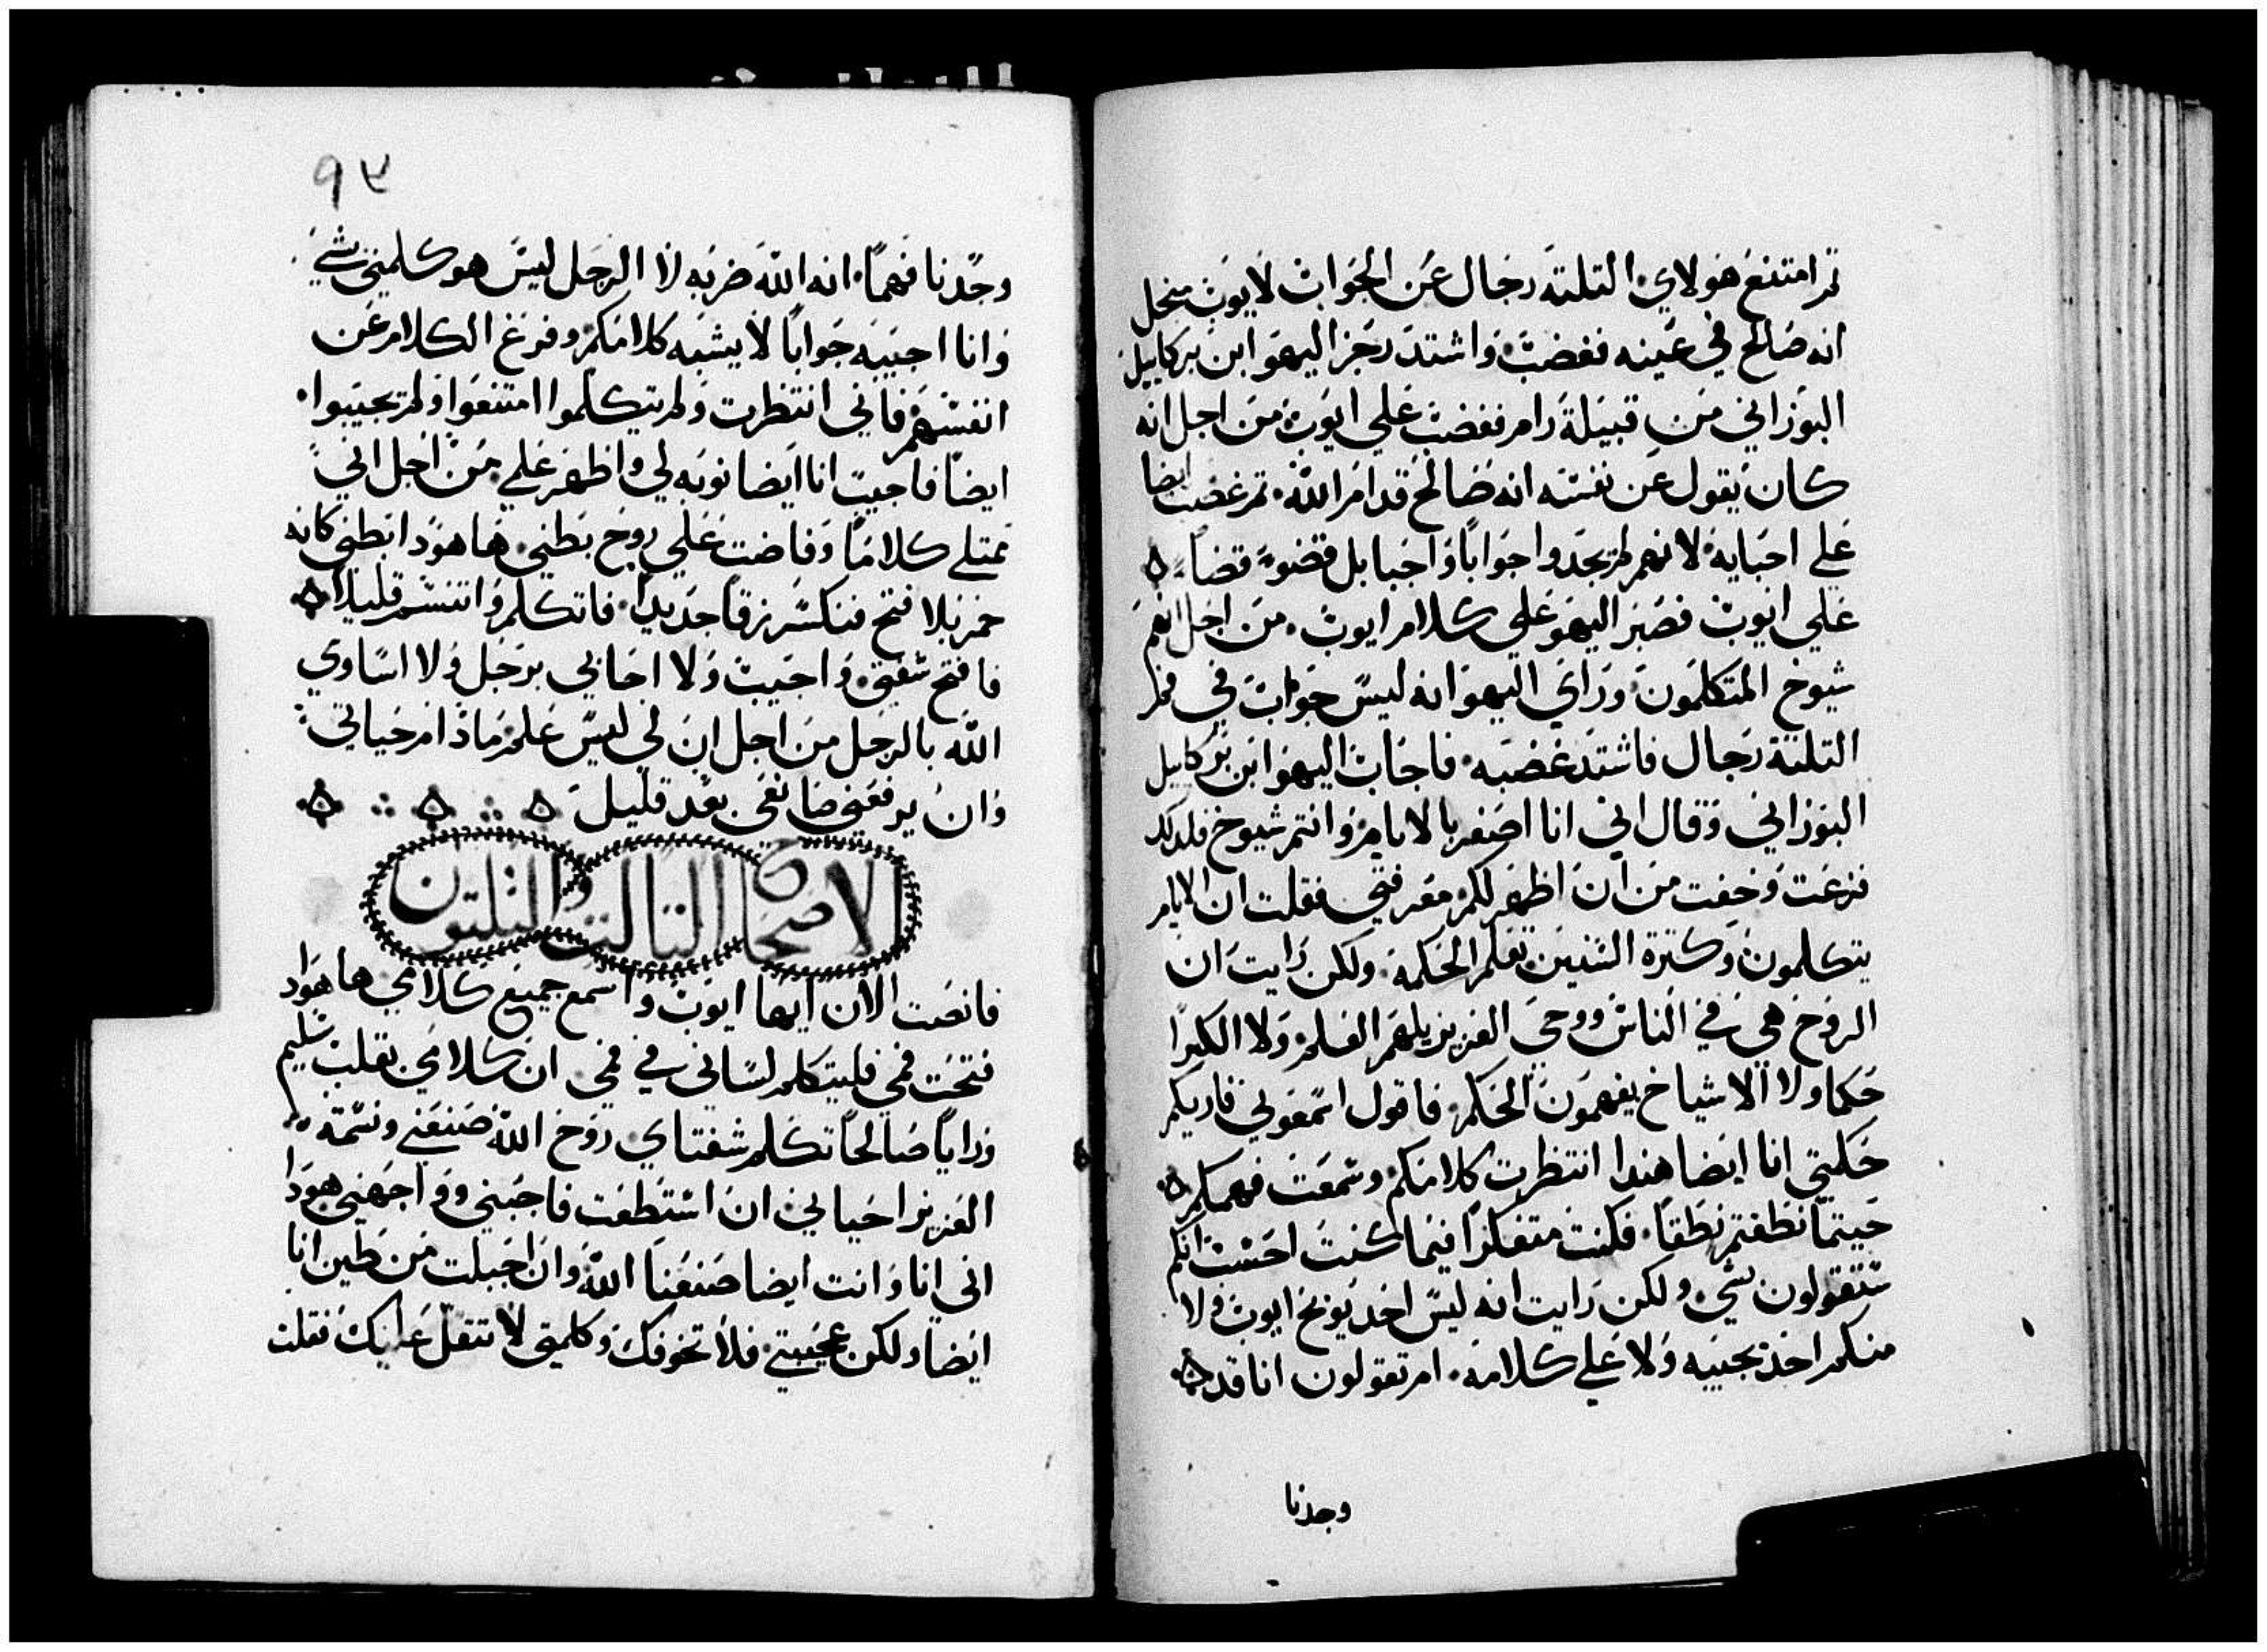 ثم امتنع هولاي التلتة رجال عن الجواب لايوب منجل
انه صالح في عينه فغضب واشتد رجز اليهو ابن بركاييل
البوزاني من قبيلة رام فغضب علي ايوب من اجل انه
كان يقول عن نفسه انه صالح قدام الله ثم غضب ايضا
علي احبايه لانهم لم يجدوا جوابا واجبا بل قضوا قضا
علي ايوب فصبر اليهو علي كلام ايوب من اجل انهم
شيوخ المتكلمون وراي اليهو انه ليس جواب في فم
التلتة رجال فاشتد غضبه فاجاب اليهو ابن بركاييل
البوزاني وقال اني انا اصغر بالايام وانتم شيوخ فلدلك
فزعت وخفت من ان اظهر لكم معرفتي فقلت ان الايام
يتكلمون وكترة السنين تعلم الحكمة ولكن رايت ان
الروح هي في الناس ووحي العزيز يلهم العلم ولا الكبرا
حكما ولا الاشياخ يفهمون الحكم فاقول اسمعوني فاريكم
حكمتي انا ايضا هندا انتظرت كلامكم وسمعت فهمكم
حيتما نطقتم نطقا فكنت متفكرا فيما كنت احسب انكم
ستقولون شي ولكن رايت انه ليس احد يوبخ ايوب ولا
منكم احد يجيبه ولا علي كلامه ام تقولون انا قد
وجدنا
٩٣
وجدنا فهما انه الله ضربه لا الرجل ليس هو كلمني شي
وانا اجيبه جوابا لا يشبه كلامكم وفرغ الكلام عن
انفسهم فاني انتظرت ولم يتكلموا امتنعوا ولم يجيبوا
ايضا فاجيب انا ايضا نوبه لي واظهر علمي من اجل اني
ممتلي كلاما وفاضت علي روح بطني ها هودا بطني كانه
خمر بلا فتح فتكسر زقا جديدا فاتكلم واتنسم قليلا
فافتح شفتي واجيب ولا احابي برجل ولا اساوي
الله بالرجل من اجل ان لي ليس علم مادام حياتي
وان يرفعني صانعي بعد قليل
الاصحاح التالت والتلتون
فانصت الان ايها ايوب واسمع جميع كلامي ها هودا
فتحت فمي فليتكلم لساني في فمي ان كلامي بقلب سليم
ورايا صالحا تكلم شفتاي روح الله صنعني ونسمة
العزيز احياني ان استطعت فاجبني وواجهني هودا
اني انا وانت ايضا صنعنا الله وان اجبلت من طين انا
ايضا ولكن عجيبتي فلا تخوفك وكلمتي لا تتقل عليك فقلت